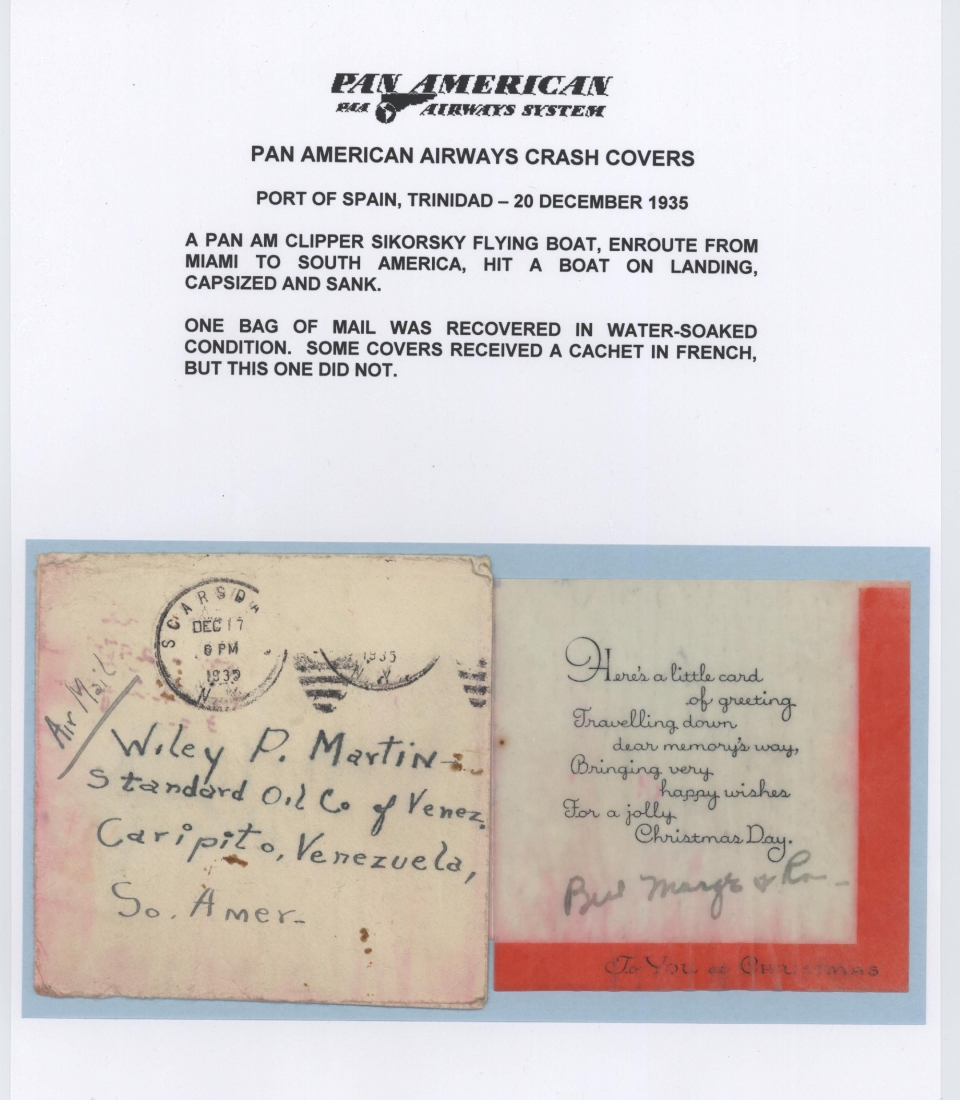 PAN AMERICAN
PAA AIRWAYS SYSTEM
PAN AMERICAN AIRWAYS CRASH COVERS
PORT OF SPAIN, TRINIDAD – 20 DECEMBER 1935
A PAN AM CLIPPER SIKORSKY FLYING BOAT, ENROUTE FROM
MIAMI TO SOUTH AMERICA, HIT A BOAT ON LANDING,
CAPSIZED AND SANK.
ONE BAG OF MAIL WAS RECOVERED IN WATER-SOAKED
CONDITION. SOME COVERS RECEIVED A CACHET IN FRENCH,
BUT THIS ONE DID NOT.
SCARSDA
DEC 17
6 PM
1935
N.Y.
1935
N.Y.
Air Mail
Wiley P. Martin
Standard Oil Co of Venez.
Caripito, Venezuela,
So. Amer-
Here's a little card
of greeting
Travelling down
dear memory's way,
Bringing very
happy wishes
For a jolly
Christmas Day.
Marge &
To You at Christmas